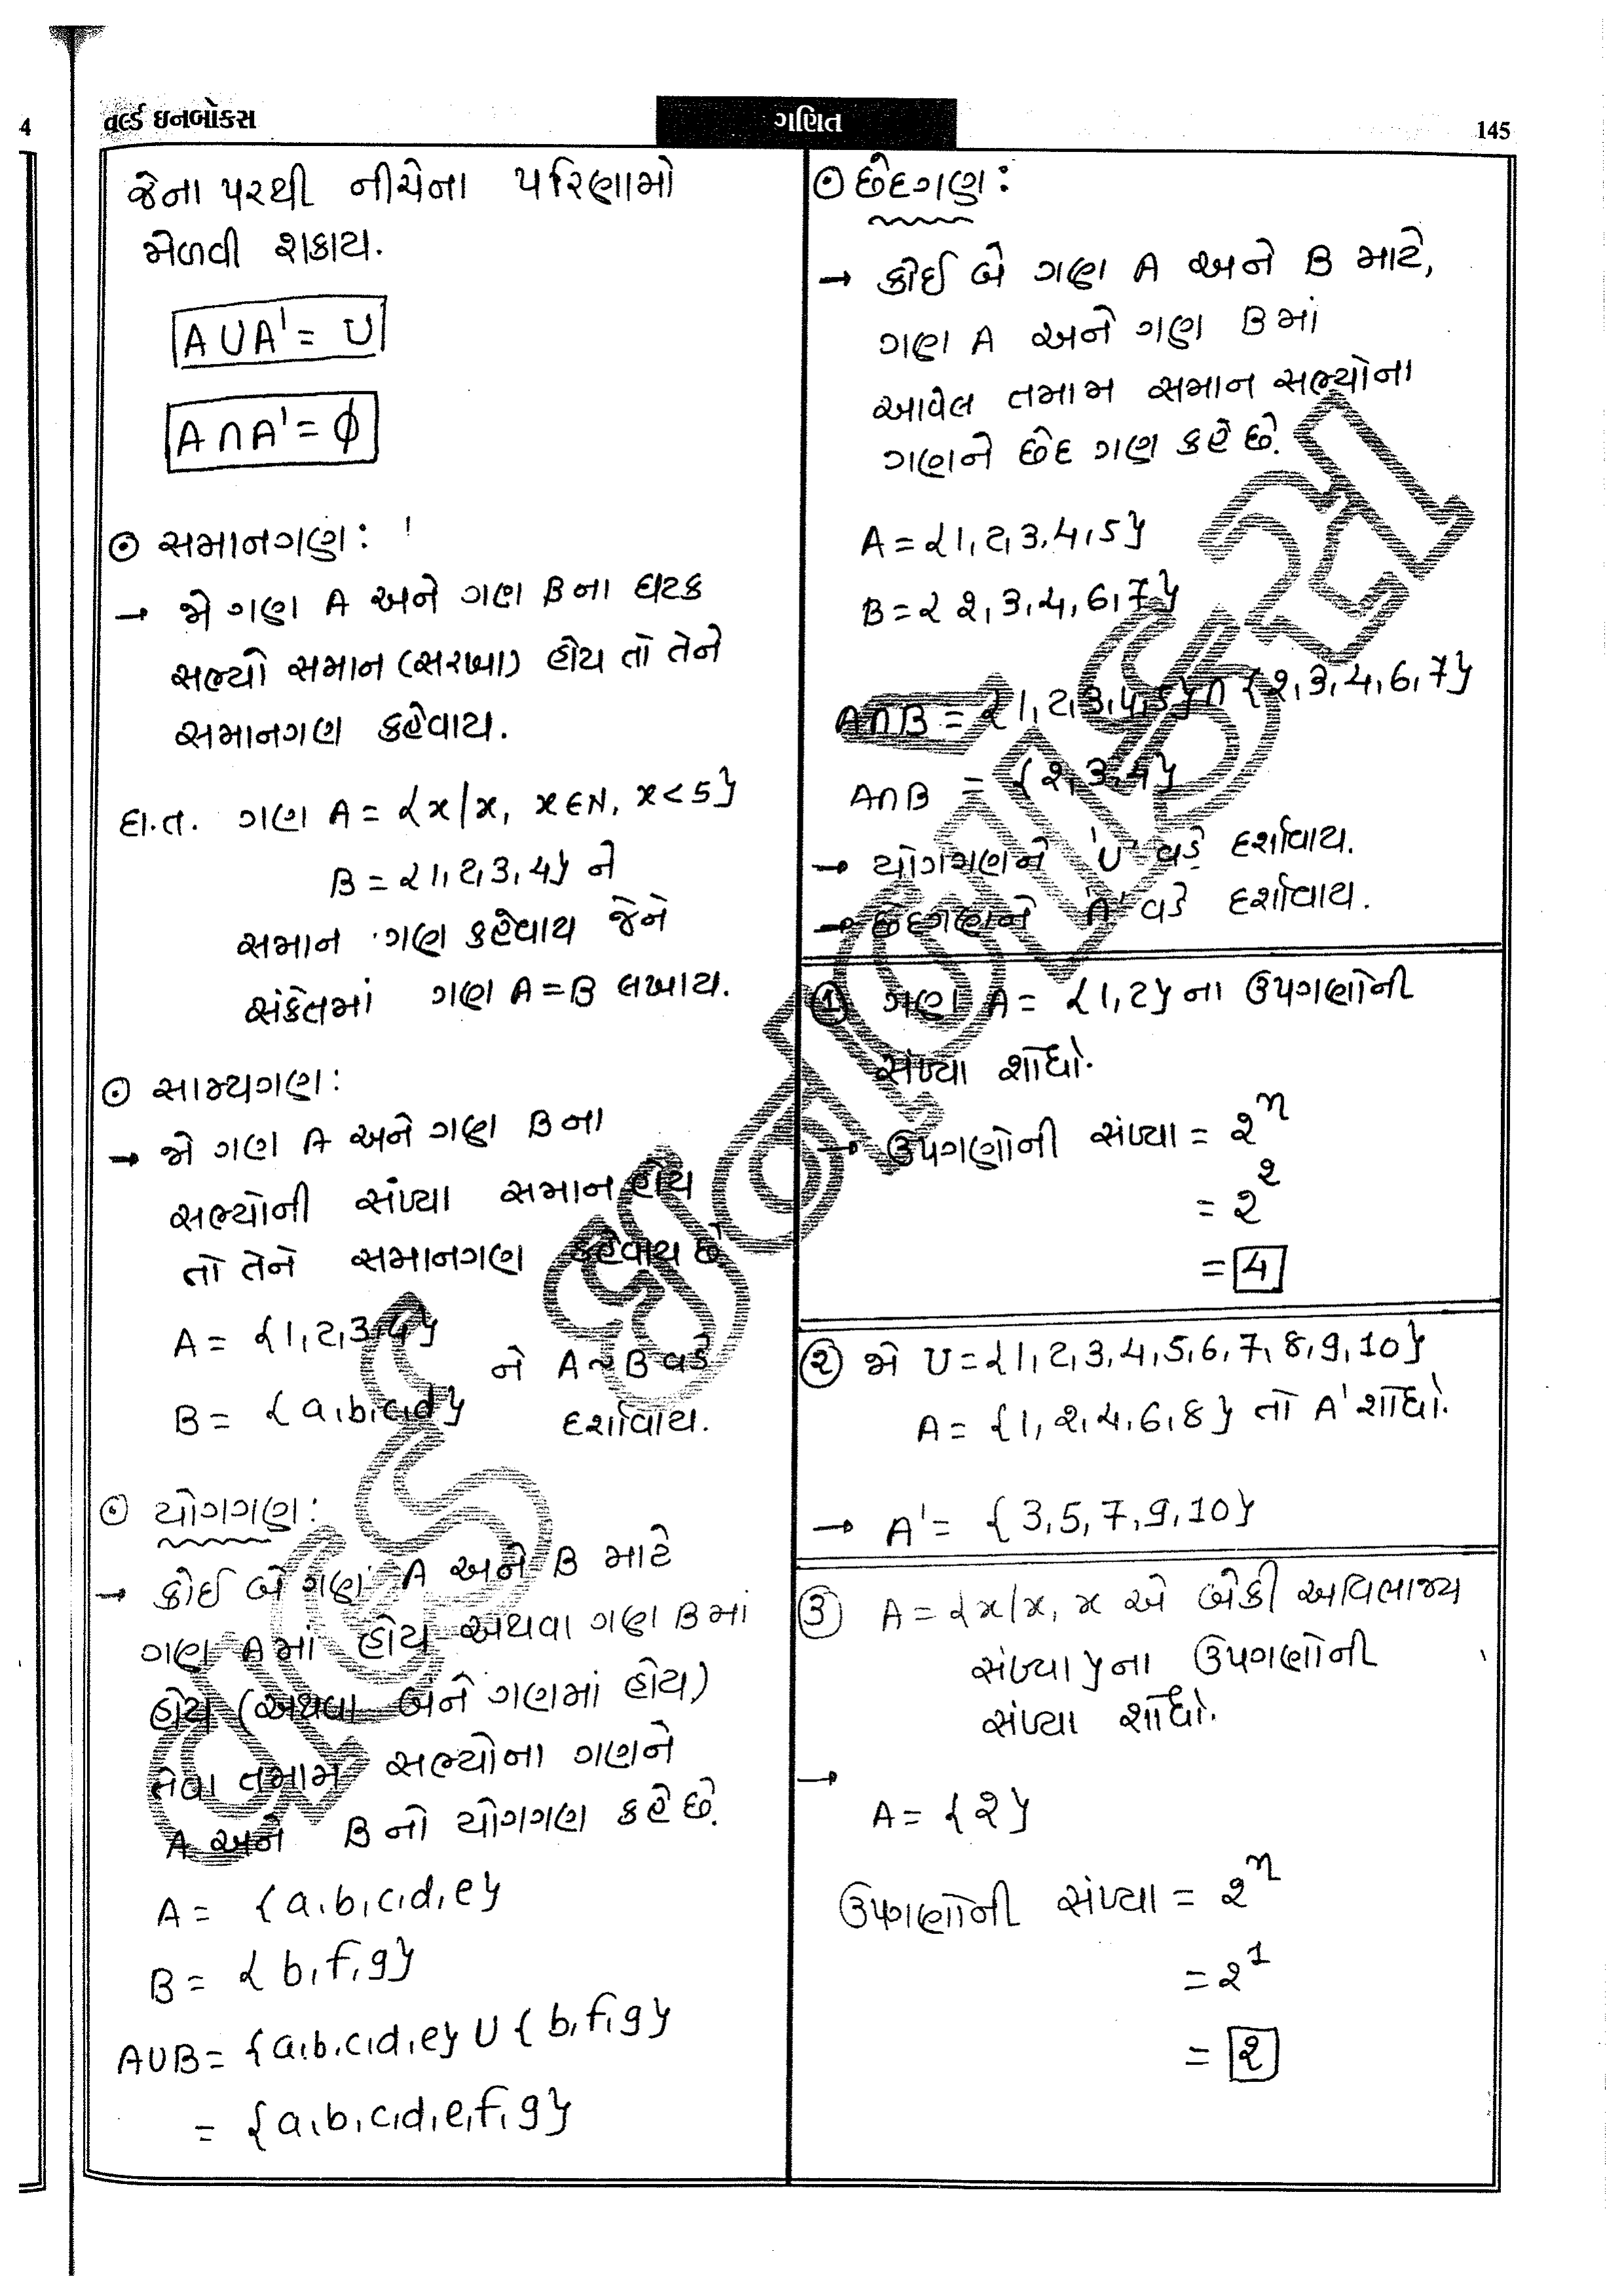 4
વર્લ્ડ ઇનબોક્સ
ગણિત
145
જેના પરથી નીચેના પરિણામો
મેળવી શકાય.
A ∪ A' = U
A ∩ A' = ϕ
⊙ સમાનગણ :
→ જો ગણ A અને ગણ B ના ઘટક
સભ્યો સમાન (સરખા) હોય તો તેને
સમાનગણ કહેવાય.
દા.ત. ગણ A = {x/x, x∈N, x<5}
B = {1, 2, 3, 4} ને
સમાન ગણ કહેવાય જેને
સંકેતમાં ગણ A = B લખાય.
⊙ સામ્યગણ :
→ જો ગણ A અને ગણ B ના
સભ્યોની સંખ્યા સમાન હોય
તો તેને સમાનગણ કહેવાય છે
A = {1, 2, 3, 4}
ને A ~ B વડે
B = {a, b, c, d}
દર્શાવાય.
⊙ યોગગણ :
→ કોઈ બે ગણ A અને B માટે
ગણ A માં હોય અથવા ગણ B માં
હોય (અથવા બંને ગણમાં હોય)
તેવા તમામ સભ્યોના ગણને
A અને B નો યોગગણ કહે છે.
A = {a, b, c, d, e}
B = {b, f, g}
A∪B = {a, b, c, d, e} ∪ {b, f, g}
= {a, b, c, d, e, f, g}
⊙ છેદગણ :
→ કોઈ બે ગણ A અને B માટે,
ગણ A અને ગણ B માં
આવેલ તમામ સમાન સભ્યોના
ગણને છેદ ગણ કહે છે.
A = {1, 2, 3, 4, 5}
B = {૨, 3, 4, 6, 7}
A∩B = {1, 2, 3, 4, 5} ∩ {૨, 3, 4, 6, 7}
A∩B = {૨, 3, 4}
→ યોગગણને 'U' વડે દર્શાવાય.
→ છેદગણને '∩' વડે દર્શાવાય.
① ગણ A = {1, 2} ના ઉપગણોની
સંખ્યા શોધો.
→ ઉપગણોની સંખ્યા = ૨ⁿ
= ૨^૨
= 4
(૨) જો U = {1, 2, 3, 4, 5, 6, 7, 8, 9, 10}
A = {1, ૨, 4, 6, 8} તો A' શોધો.
→ A' = {3, 5, 7, 9, 10}
③ A = {x/x, x એ બેકી અવિભાજ્ય
સંખ્યા} ના ઉપગણોની
સંખ્યા શોધો.
→
A = {૨}
ઉપગણોની સંખ્યા = ૨ⁿ
= ૨¹
= ૨
વર્લ્ડ ઇનબોક્સ